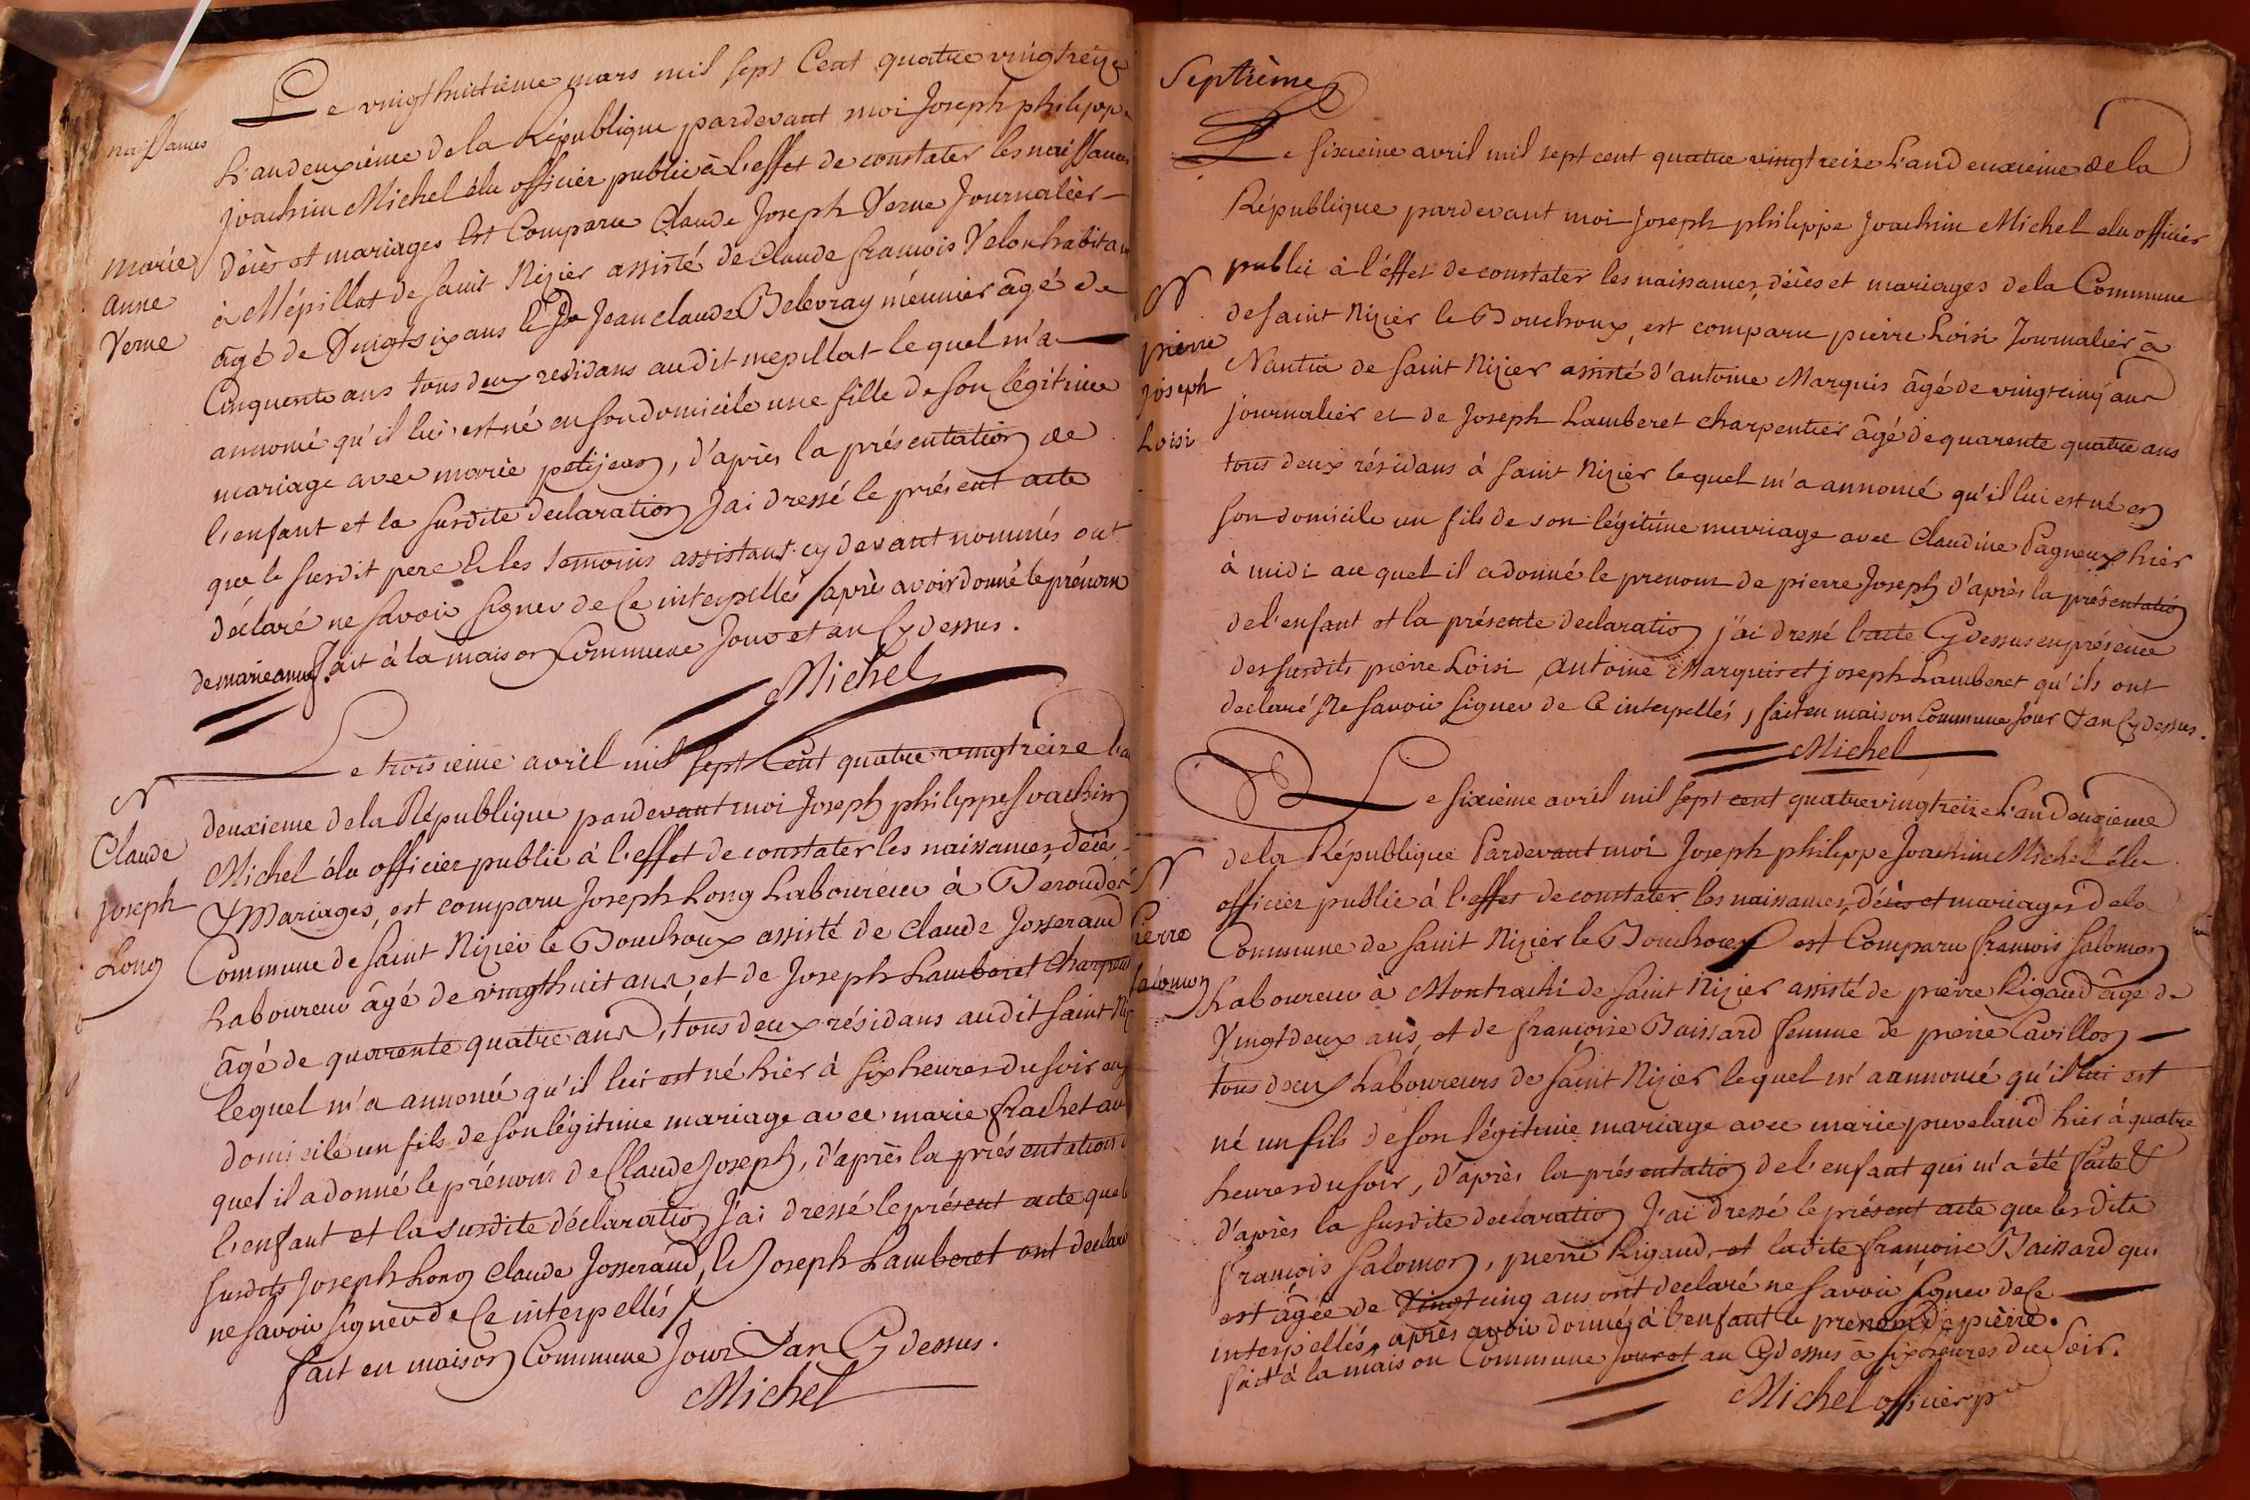 Le vingthuitieme mars mil sept Cent quatre vingtreize
naissances
L'an deuxiéme de la République pardevant moi Joseph philippe
joachim Michel élu officier public à l'effet de constater les naissances
décès et mariages Est Comparu Claude Joseph Verne Journalier
marie
à Mépillat de saint Nizier assisté de Claude francois Velon habitant
anne
âgé de Vingtsix ans Et De Jean claude Belevray méunier âgé de
Verne
Cinquente ans tous deux residans audit mepillat lequel m'a
annoncé qu'il lui est né en son domicile une fille de son légitime
mariage avec marie petijean, d'après la présentation de
l'enfant et la susdite declaration J'ai dressé le présent acte
que le susdit pere Et les temoins assistants cy devant nommés ont
déclaré ne savoir signer de Ce interpellés après avoir donné le prénom
de marie anne fait à la maison Commune Jour et an Cy dessus.
Michel
Le troisieme avril mil sept Cent quatre vingtreize l'an
N
deuxieme dela République pardevant moi Joseph philippe Joachim
Claude
Michel élu officier public à l'effet de constater les naissances, décès
joseph
& Mariages, est comparu Joseph Long Laboureur à
Long
Commune de saint Nizier le Bouchoux assisté de claude Josserand
Laboureur âgé de vingthuit ans, et de Joseph Lamberet charpentier
âgé de quarente quatre ans, tous deux résidans audit saint Niz
lequel m'a annoncé qu'il lui est né hier à six heures du soir en
domicile un fils de son légitime mariage avec marie frachet au
quel il a donné le prénom de Claude Joseph, d'après la présentation
l'enfant et la susdite déclaration J'ai dressé le présent acte que
susdits Joseph Long Claude Josserand, Et Joseph Lamberet ont declaré
ne savoir signer de Ce interpellés
fait en maison Commune Jour & an Cy dessus.
Michel
Septième
Le sixieme avril mil sept cent quatre vingtreize L'an deuxieme de la
République pardevant moi Joseph philippe Joachim Michel elu officier
N
public à l'éffet de constater les naissances, décès et mariages de la Commune
de saint Nizier le Bouchoux, est comparu pierre Loisi Journalier à
pierre
Nantia de saint Nizier assisté d'antoine Marquis âgé de vingtcinq ans
joseph
journalier et de Joseph Lamberet charpentier âgé de quarente quatre ans
Loisi
tous deux résidans à saint Nizier lequel m'a annoncé qu'il lui est né en
son domicile un fils de son légitime mariage avec Claudine Pagneux hier
à midi auquel il a donné le prenom de pierre Joseph d'après la présentation
de l'enfant et la présente declaration j'ai dressé l'acte Cy dessus en présence
des susdits pierre Loisi, antoine Marquis et joseph Lamberet qu'ils ont
declaré Ne savoir signer de Ce interpellés, fait en maison Commune Jour & an Cy dessus.
Michel
Le sixième avril mil sept cent quatre vingtreize L'an deuxieme
dela République Pardevant moi Joseph philippe Joachim Michel élu
N
officier public à l'effet de constater les naissances, décès et mariages de la
Pierre
Commune de saint Nizier le Bouchoux est Comparu francois salomon
salomon
Laboureur à Montrachi de saint Nizier assisté de pierre Rigaud âgé de
Vingtdeux ans, et de francoise Buissard femme de pierre Cavillon
tous deux Laboureurs de saint Nizier lequel m'a annoncé qu'il lui est
né un fils de son légitime mariage avec marie puveland hier à quatre
heures du soir, d'après la présentation de l'enfant qui m'a été faite &
d'après la susdite declaration J'ai dressé le présent acte que lesdits
françois salomon, pierre Rigaud, et ladite francoise Buissard qui
est âgée de Vingt cinq ans ont declaré ne savoir signer de Ce
interpellés, après avoir donné à l'enfant le prenom de pièrre.
fait à la maison Commune Jour et an Cy dessus à six heures du soir.
Michel officier pc